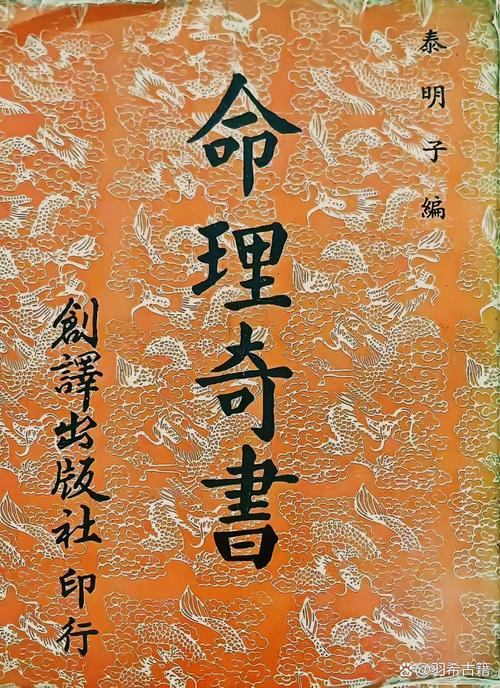 泰明子編
命理奇書
創譯出版社印行
羽希古籍